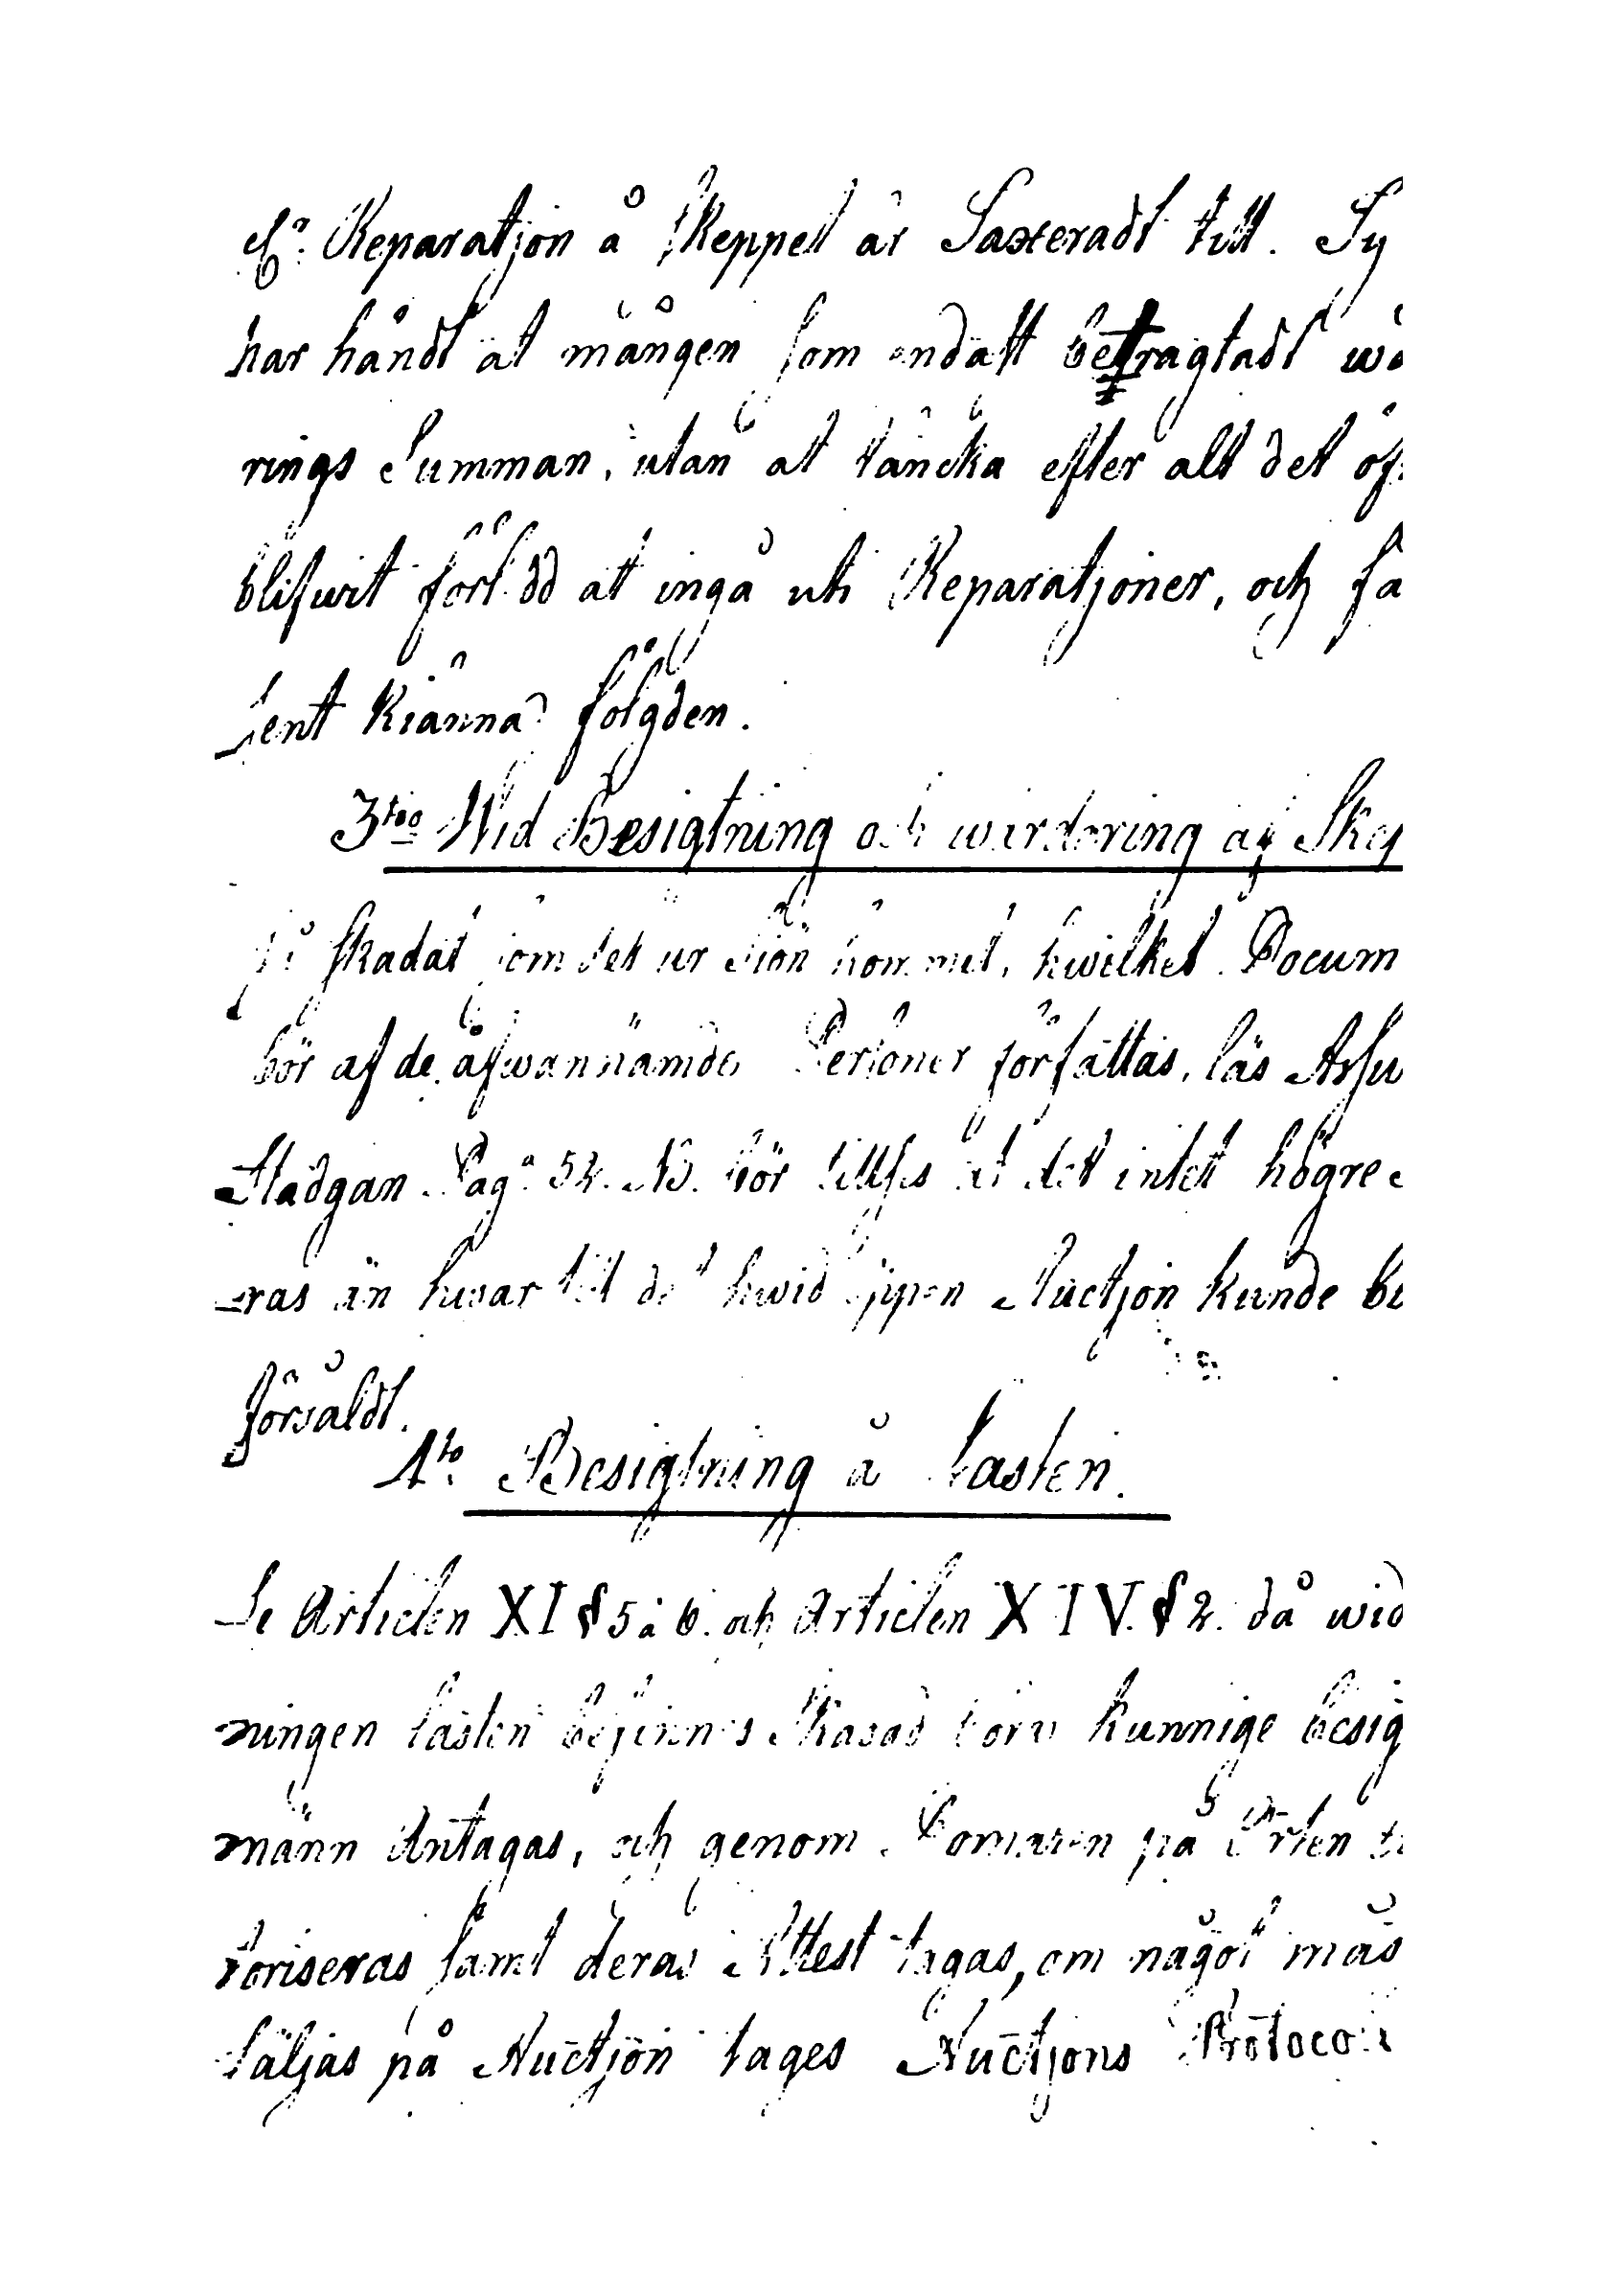 Reparatjon å Skeppet är Taxeradt till. Ty
har händt at mången som endast betragtadt wä
rings Summan, utan at täncka efter alt det öf
blifwit förstådd att ingå uti Reparatjoner, och få
sent kiänna fölgden.
3tio Wid Besigtning och wärdering af Skep
så skadat som det ur Siön kommit, hwilket Docum
bör af de åfwannämde Personer författas, läs Assu
Stadgan Pag: 52. NB. bör tillses at det intet högre
eras än hwartil det wid öppen Auctjon kunde bl
försåldt.
4to Besigtning å Lasten.
Se Articlen XI § 5 à 6. och Articlen XIV. § 2. då wid
ningen lasten befinnes Skadad böra kunnige besig
männ Antagas, och genom Domaren på Orten
toriseras samt deras Attest tagas, om något mås
säljas på Auctjon tages Auctjons Protocoll